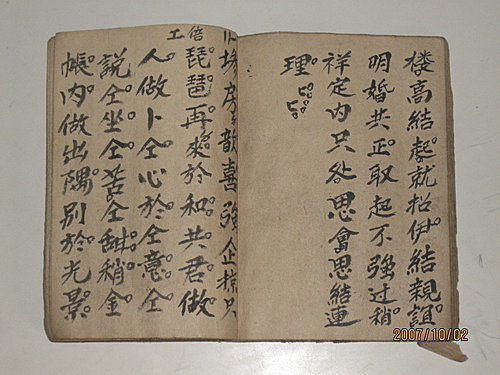 高結起就招伊結親誼
明婚共正取起不強过稍
祥定内只谷思會思結連
理
房歆喜強企只
倍
工
琵琶再來於和共君做
人做卜仝心於仝意仝
説仝坐仝苦仝甜稍金
帳内做出隅别於光景
2007/10/02